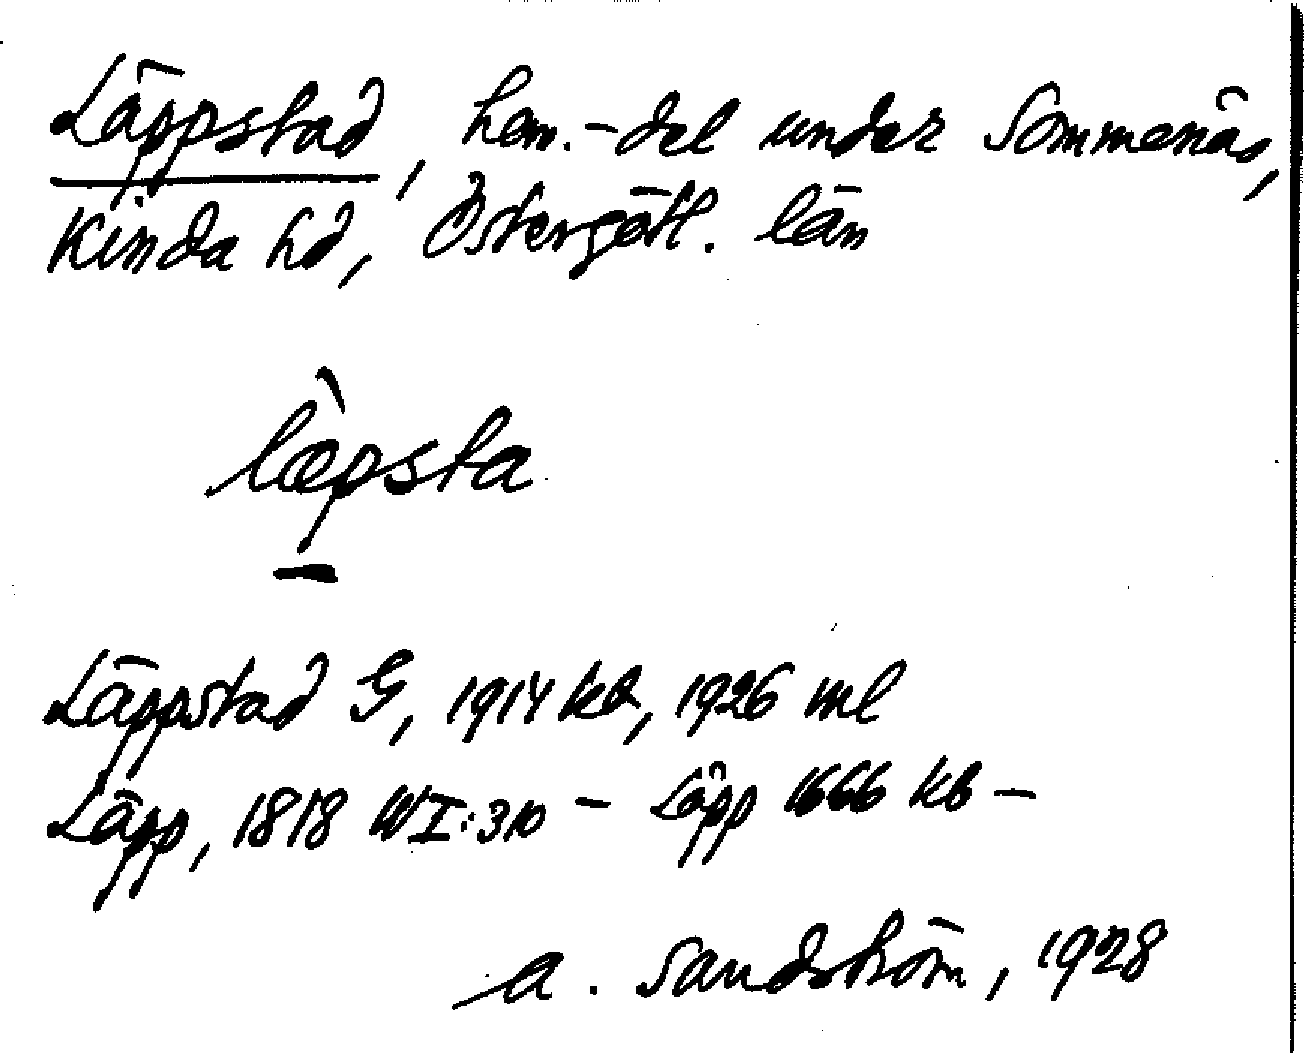 Läppstad, hem.-del under Sommenäs,
Kinda hd, Östergötl. län
læ̀psta
Läppstad G, 1914 kb, 1926 ml
Läpp, 1818 WI:310 - Låpp 1666 kb -
A. Sandström, 1928